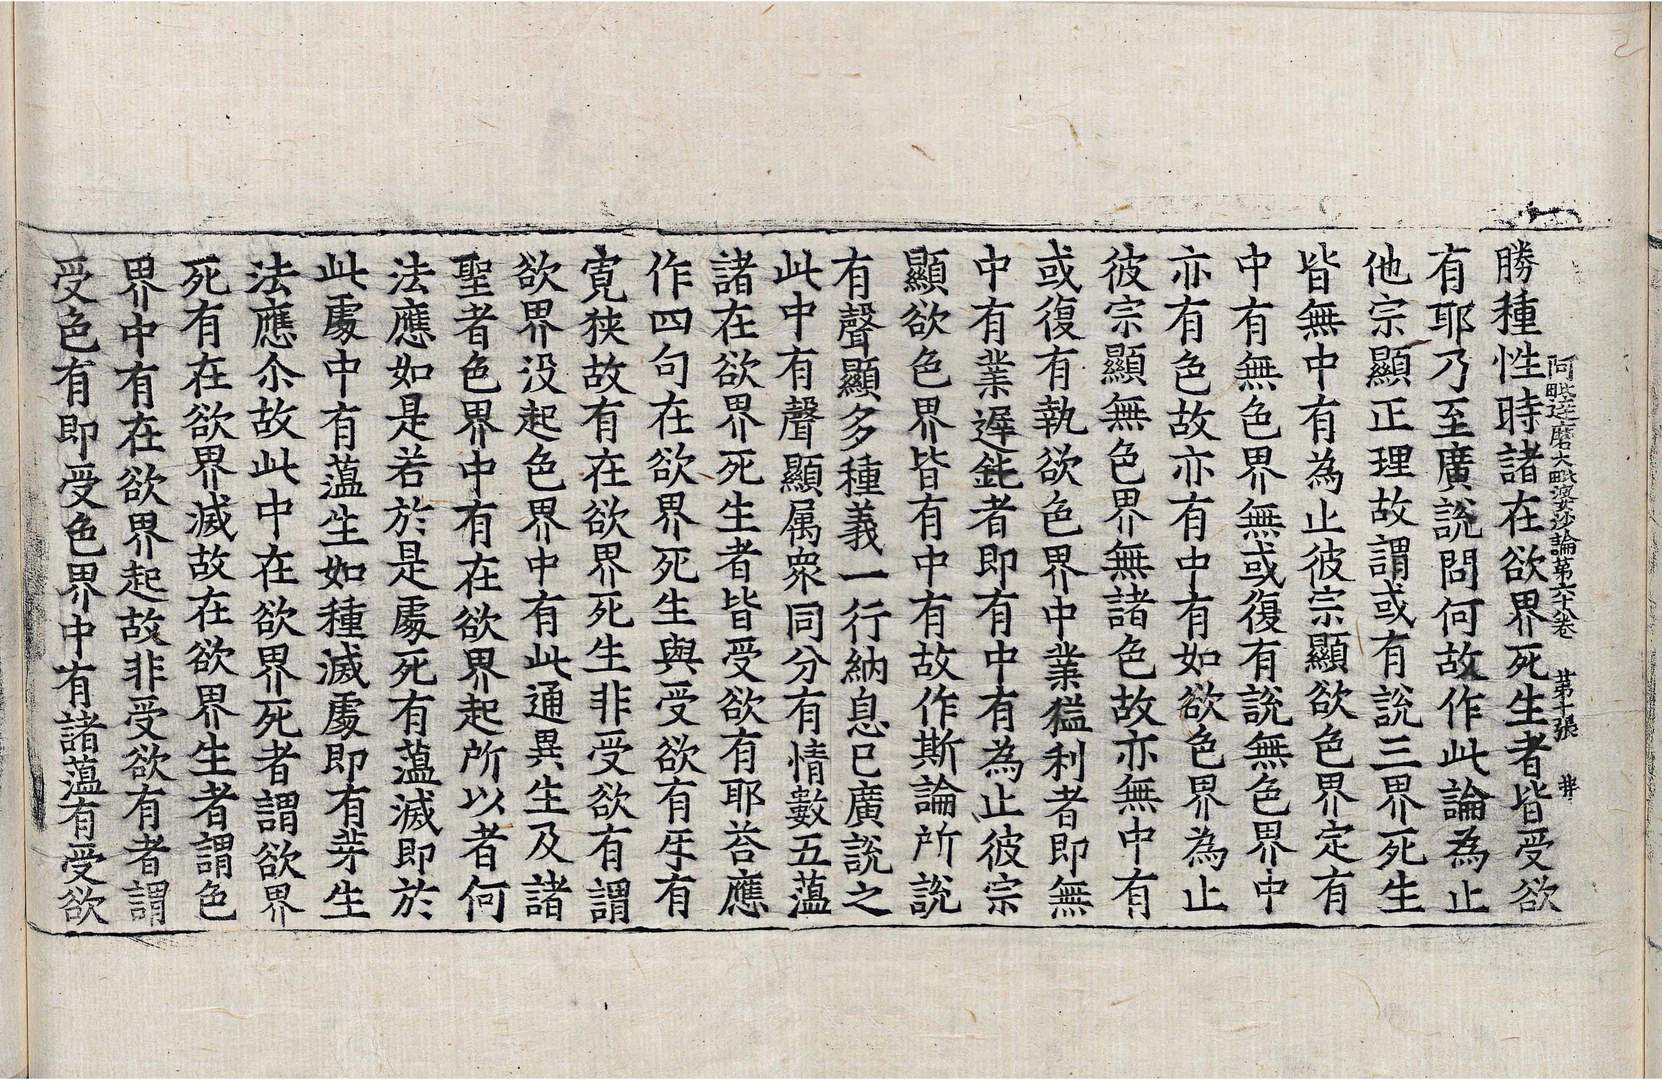 阿毗達磨大毗婆沙論第六十八卷 第十張 非
勝種性時諸在欲界死生者皆受欲
有耶乃至廣說問何故作此論為止
他宗顯正理故謂或有說三界死生
皆無中有為止彼宗顯欲色界定有
中有無色界無或復有說無色界中
亦有色故亦有中有如欲色界為止
彼宗顯無色界無諸色故亦無中有
或復有執欲色界中業猛利者即無
中有業遲鈍者即有中有為止彼宗
顯欲色界皆有中有故作斯論所說
有聲顯多種義一行納息已廣說之
此中有聲顯属衆同分有情數五蘊
諸在欲界死生者皆受欲有耶荅應
作四句在欲界死生與受欲有㸦有
寛狹故有在欲界死生非受欲有謂
欲界没起色界中有此通異生及諸
聖者色界中有在欲界起所以者何
法應如是若於是處死有蘊滅即於
此處中有蘊生如種滅處即有芽生
法應尒故此中在欲界死者謂欲界
死有在欲界滅故在欲界生者謂色
界中有在欲界起故非受欲有者謂
受色有即受色界中有諸蘊有受欲